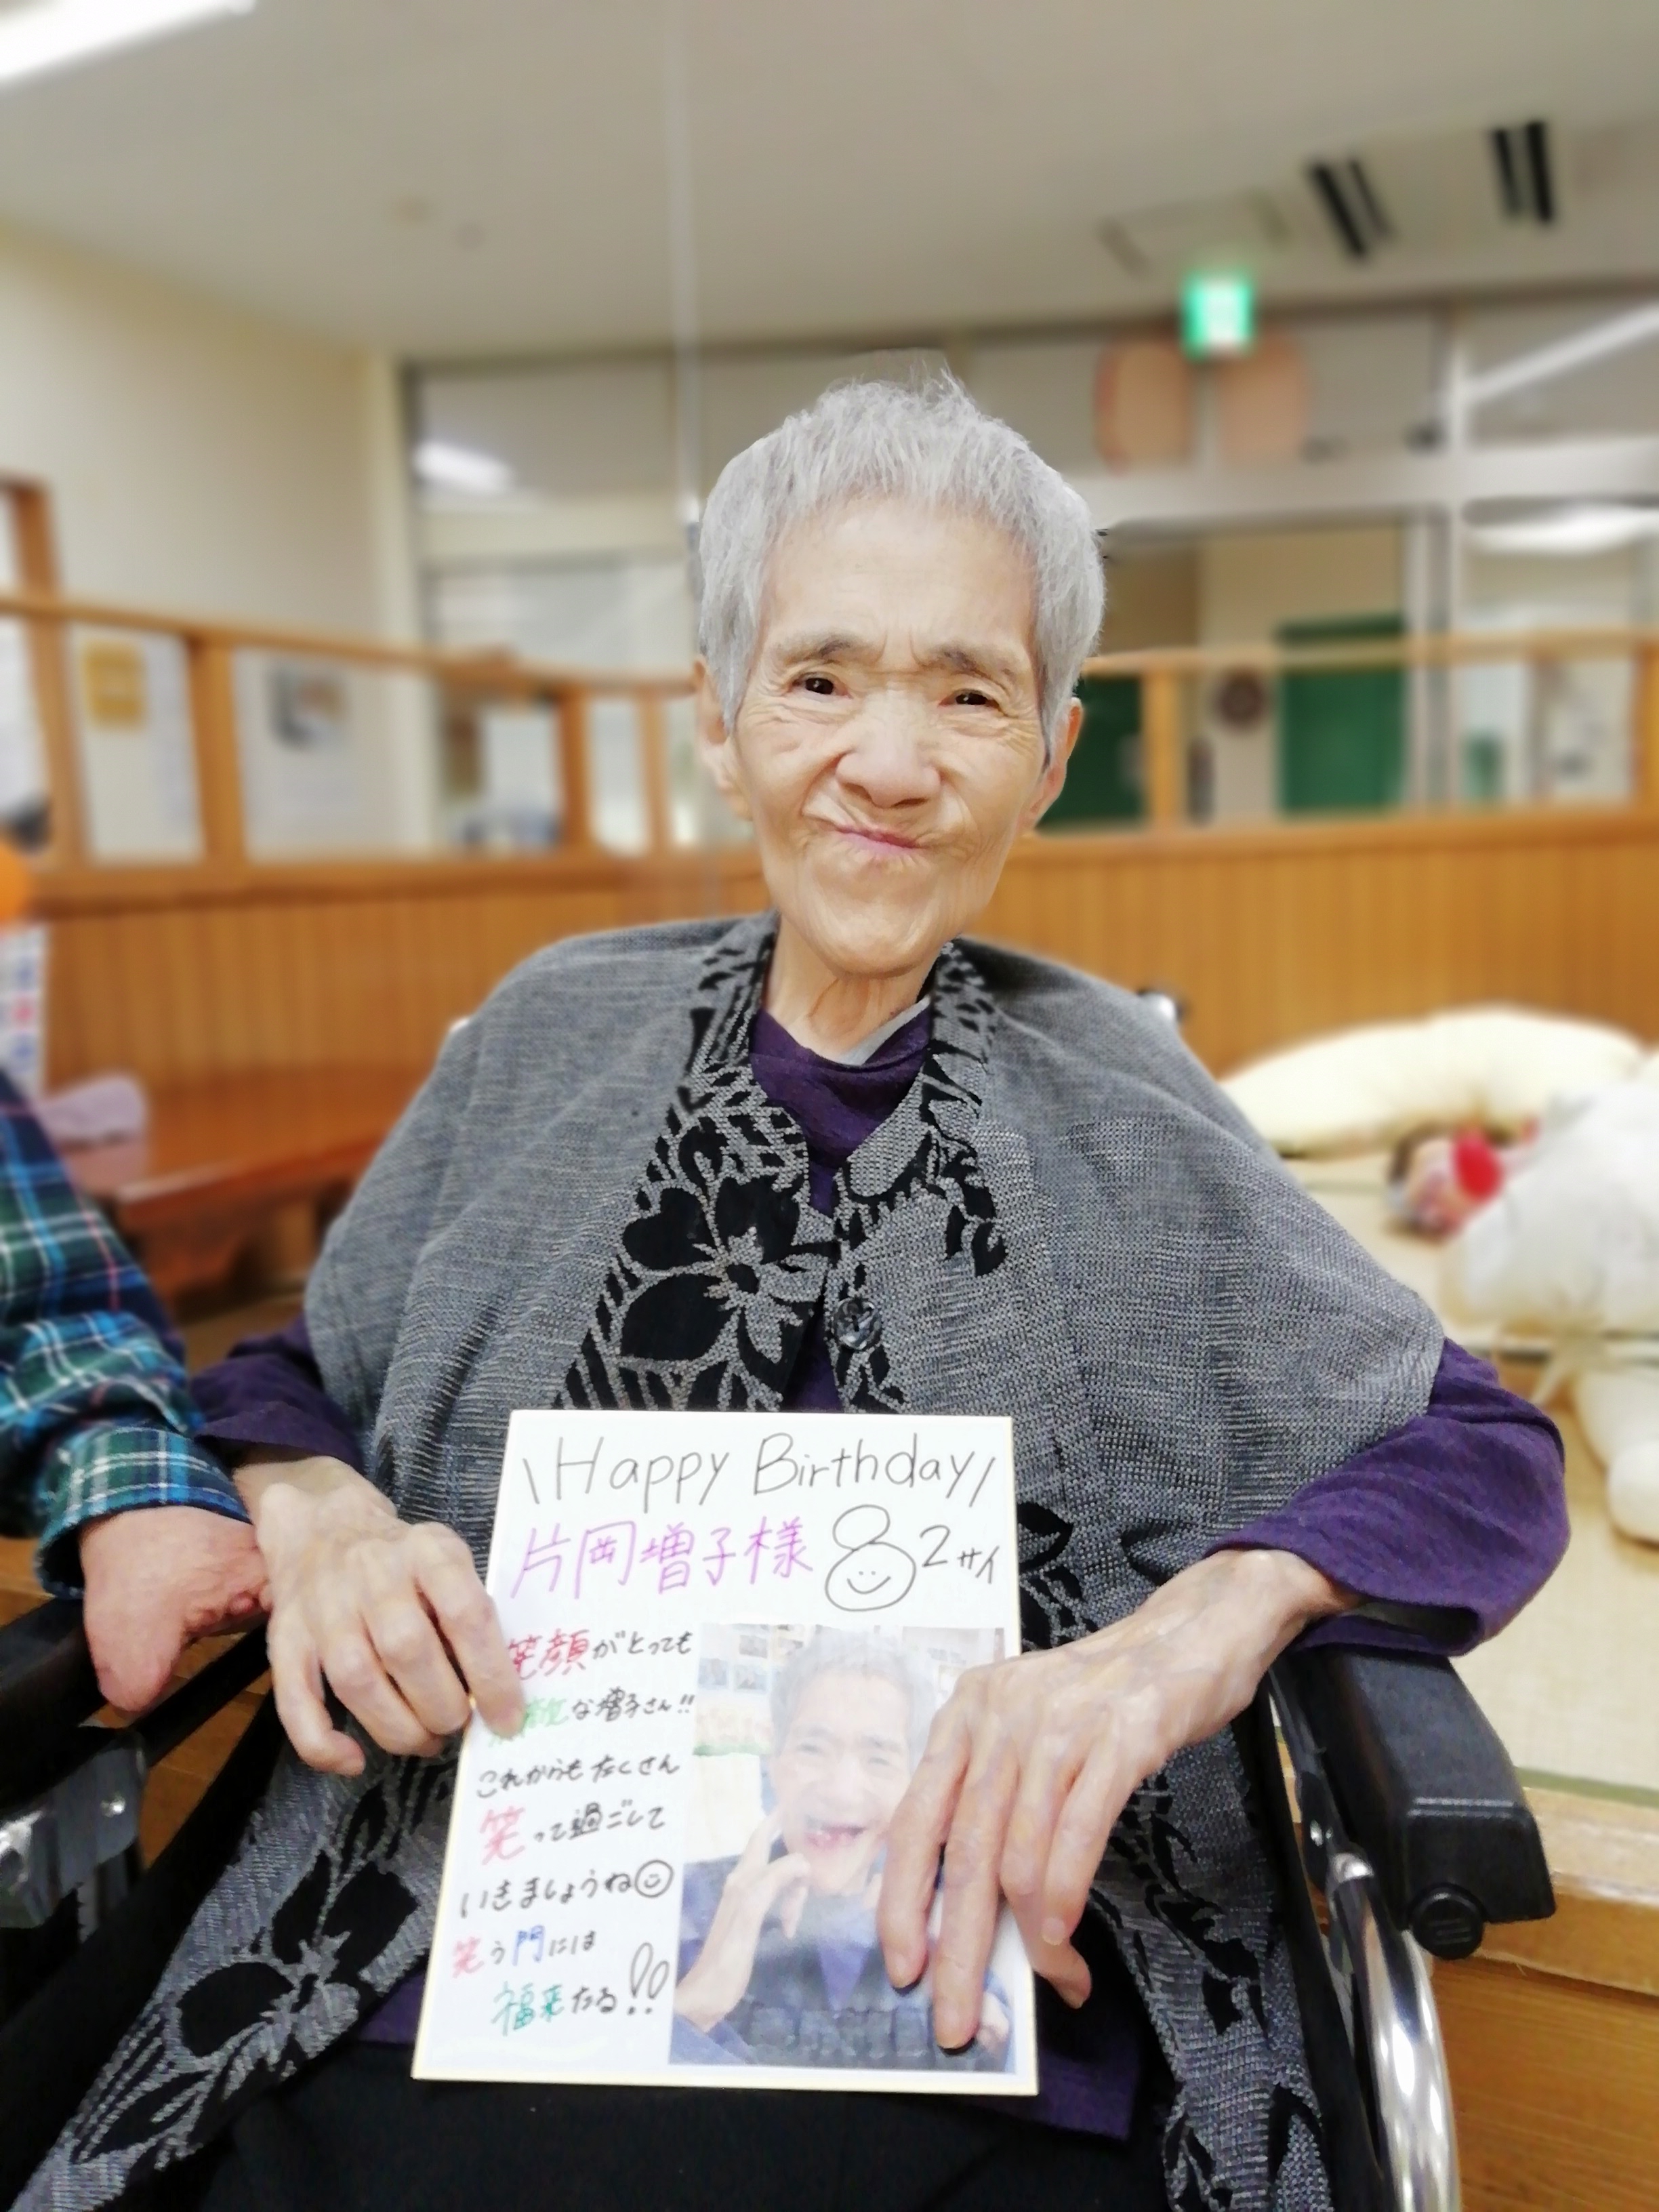 \Happy Birthday/
片岡増子様 82サイ
笑顔がとっても
な増子さん!!
これからもたくさん
笑って過ごして
いきましょうね
笑う門には
福来たる!!